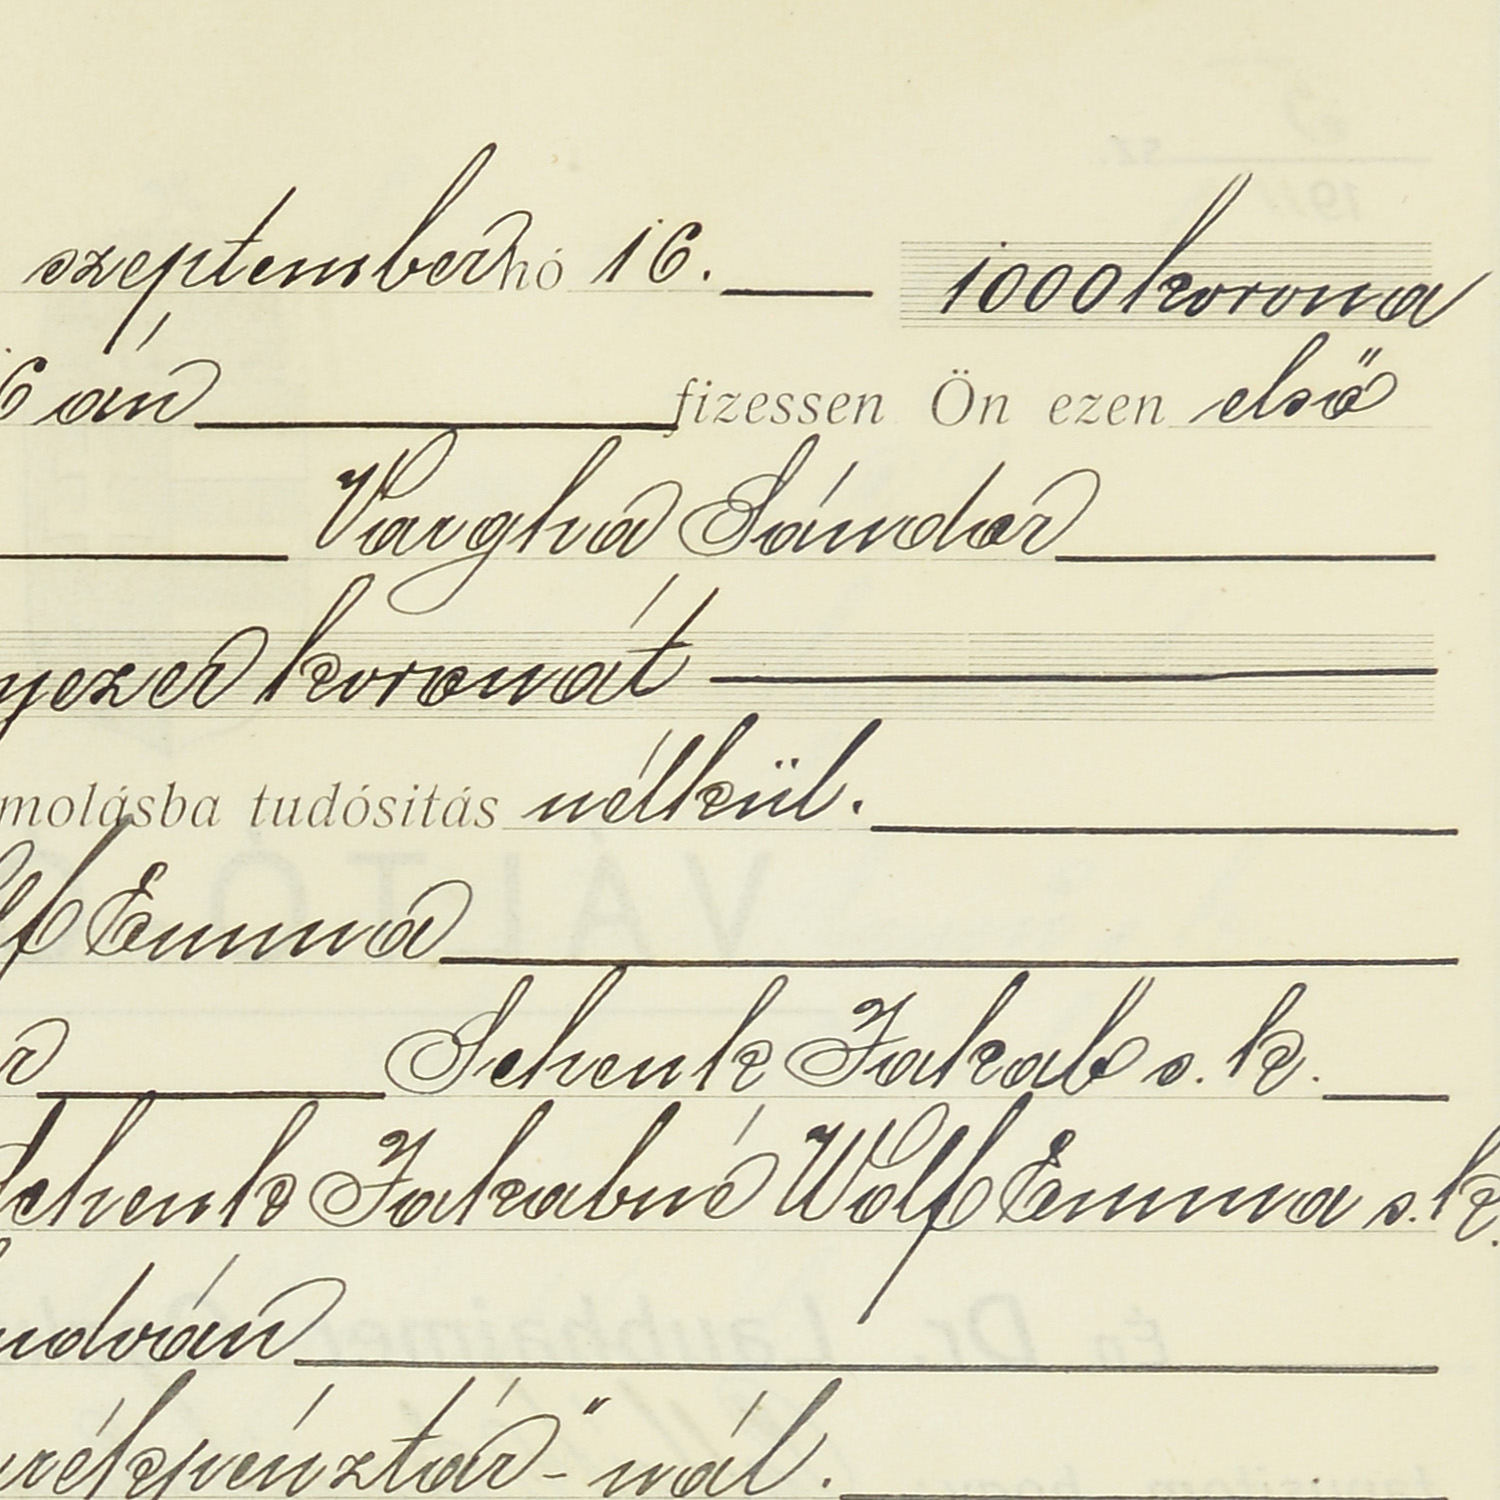 szeptember hó 16. 1000 korona
6 án fizessen Ön ezen első
Vargha Sándor
yezer koronát
molásba tudósitás nélkül.
lf Emma
r Schenk Jakab s. k.
Schenk Jakabné Wolf Emma s. k.
ndván
arékpénztár"-nál.